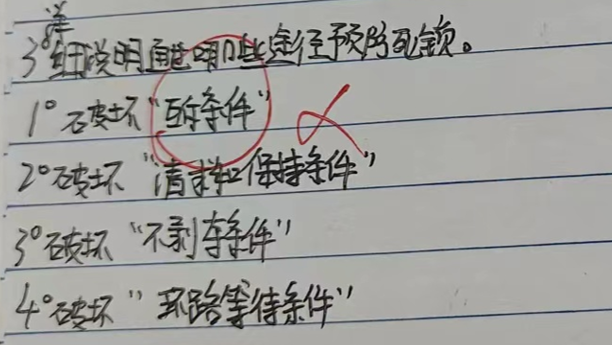 详
3°细说明通过哪几些途径预防死锁。
1°破坏“互斥条件”
2°破坏“请求和保持条件”
3°破坏“不剥夺条件”
4°破坏“环路等待条件”